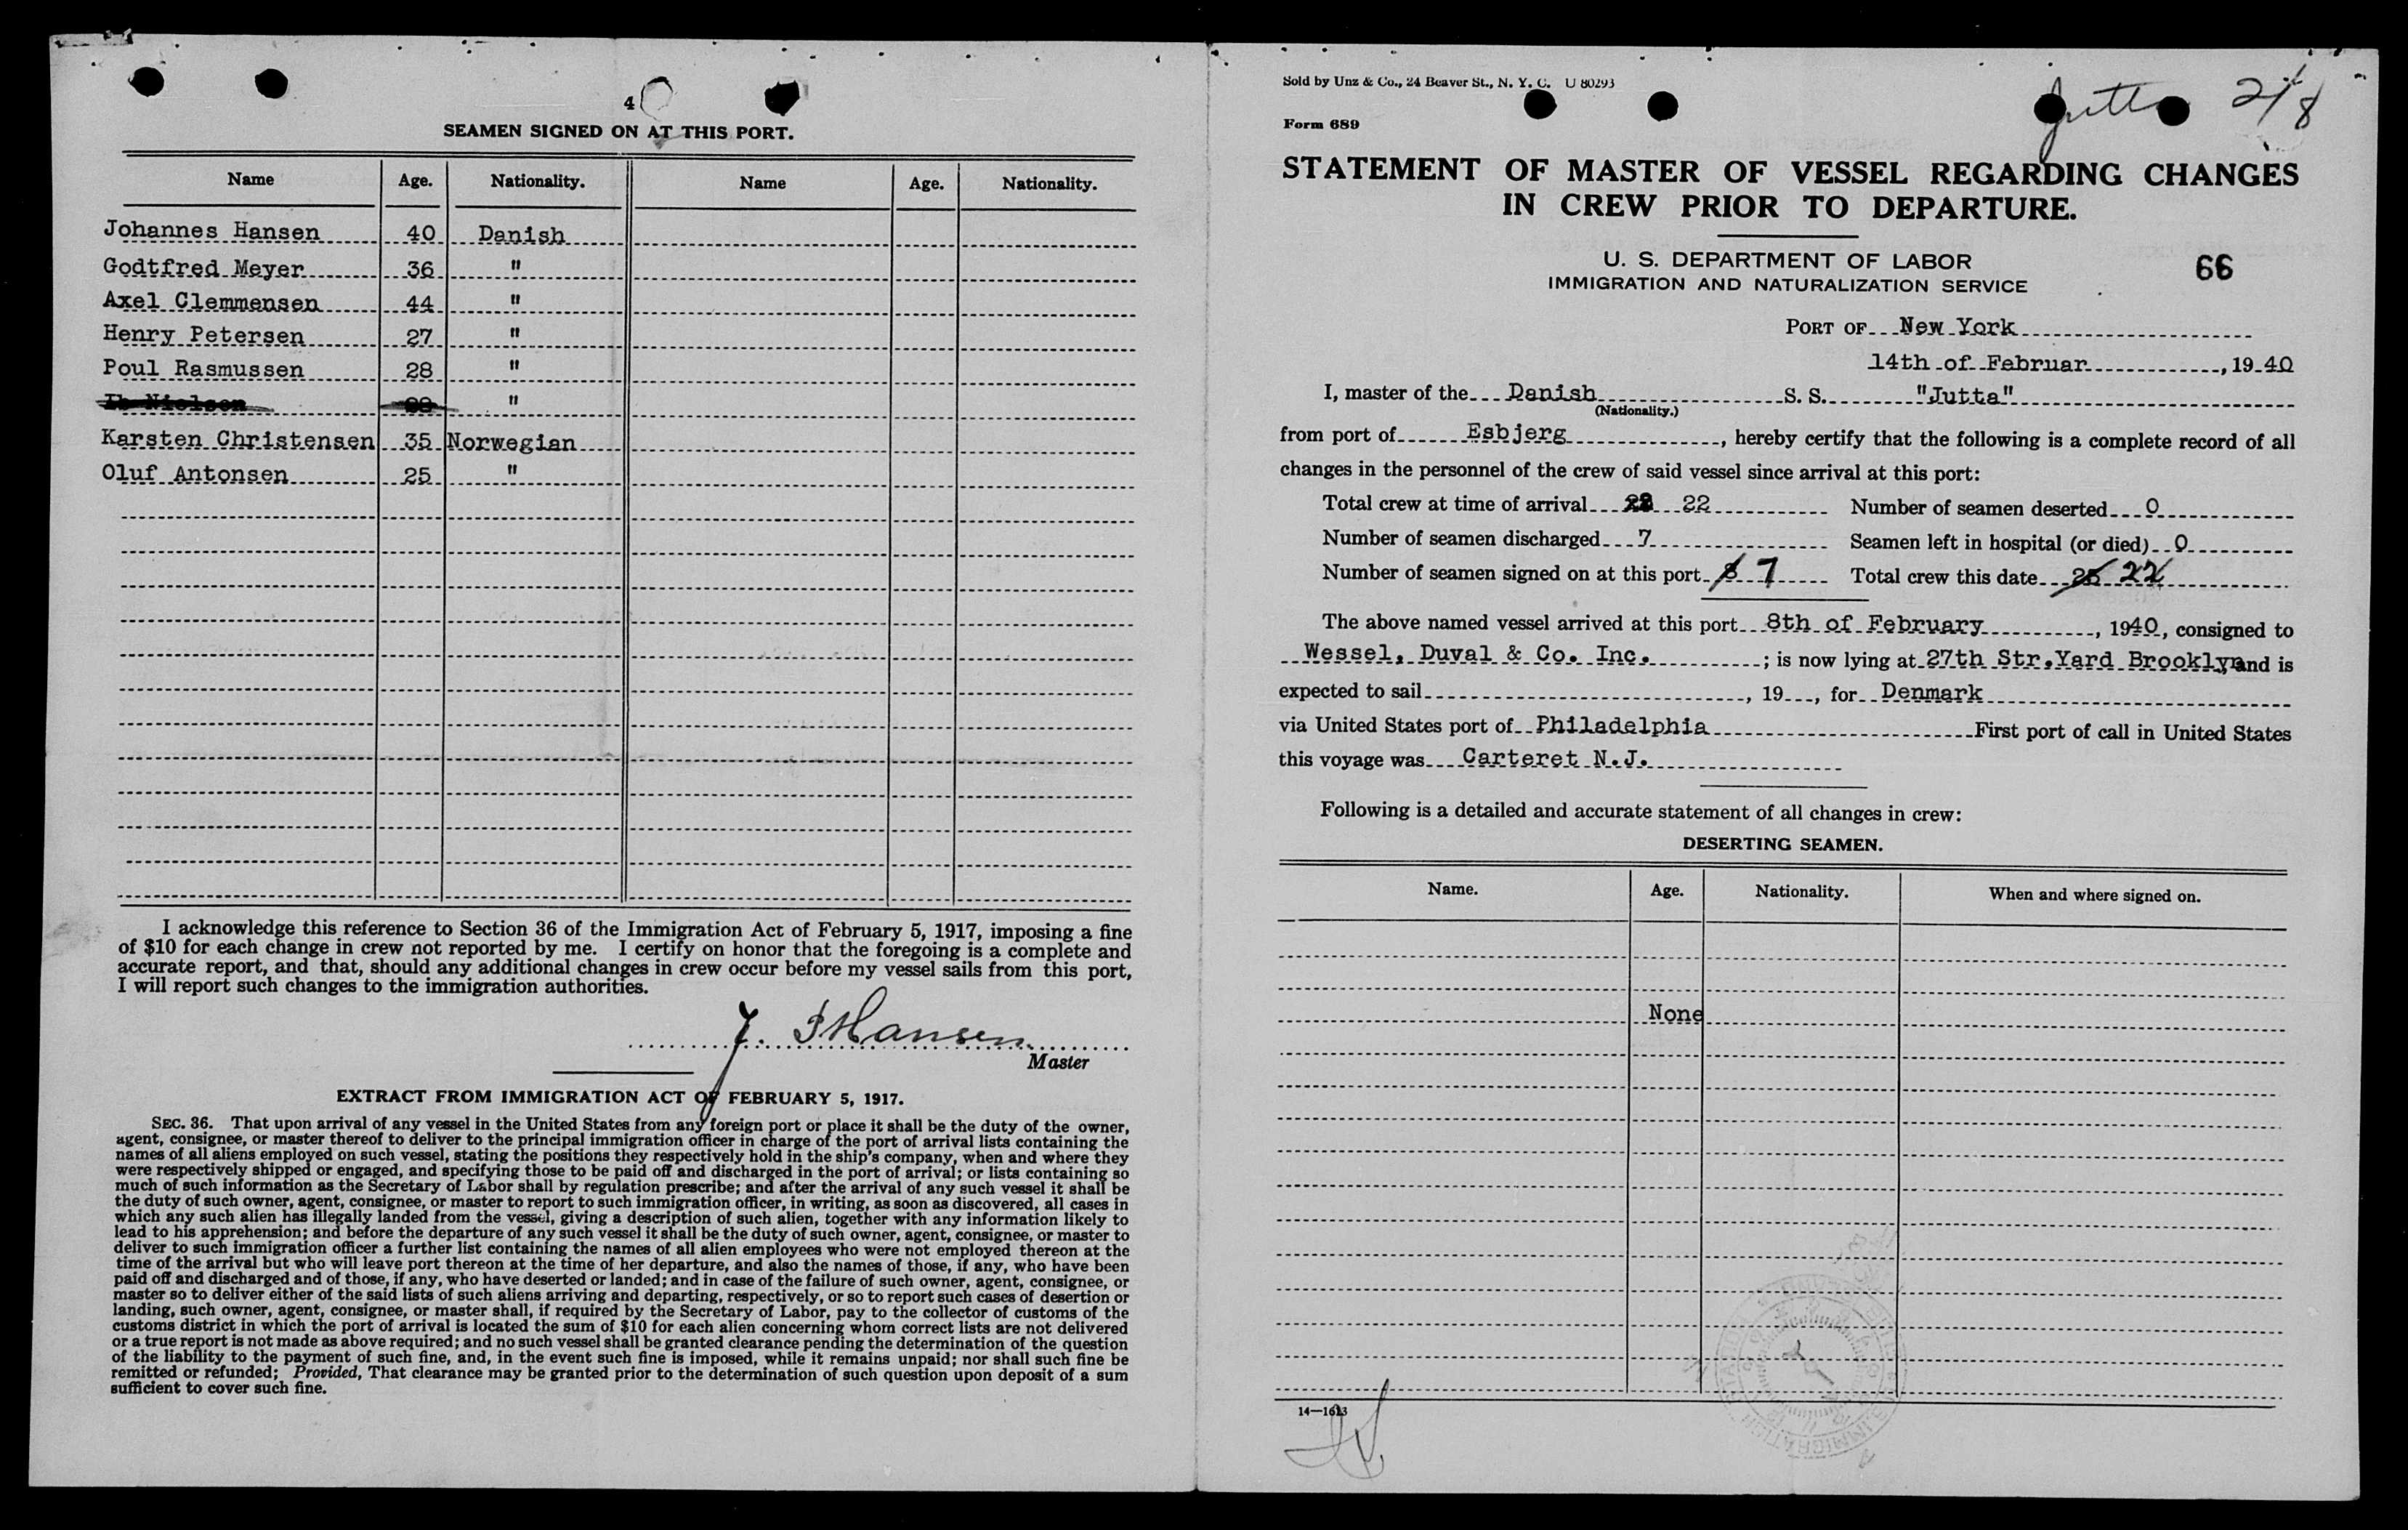 4
SEAMEN SIGNED ON AT THIS PORT.
Name Age. Nationality. Name Age. Nationality.
Johannes Hansen 40 Danish
Godtfred Meyer 36 "
Axel Clemmensen 44 "
Henry Petersen 27 "
Poul Rasmussen 28 "
Ib Nielsen "
Karsten Christensen 35 Norwegian
Oluf Antonsen 25 "
I acknowledge this reference to Section 36 of the Immigration Act of February 5, 1917, imposing a fine
of $10 for each change in crew not reported by me. I certify on honor that the foregoing is a complete and
accurate report, and that, should any additional changes in crew occur before my vessel sails from this port,
I will report such changes to the immigration authorities.
Hansen
Master
EXTRACT FROM IMMIGRATION ACT OF FEBRUARY 5, 1917.
SEC. 36. That upon arrival of any vessel in the United States from any foreign port or place it shall be the duty of the owner,
agent, consignee, or master thereof to deliver to the principal immigration officer in charge of the port of arrival lists containing the
names of all aliens employed on such vessel, stating the positions they respectively hold in the ship's company, when and where they
were respectively shipped or engaged, and specifying those to be paid off and discharged in the port of arrival; or lists containing so
much of such information as the Secretary of Labor shall by regulation prescribe; and after the arrival of any such vessel it shall be
the duty of such owner, agent, consignee, or master to report to such immigration officer, in writing, as soon as discovered, all cases in
which any such alien has illegally landed from the vessel, giving a description of such alien, together with any information likely to
lead to his apprehension; and before the departure of any such vessel it shall be the duty of such owner, agent, consignee, or master to
deliver to such immigration officer a further list containing the names of all alien employees who were not employed thereon at the
time of the arrival but who will leave port thereon at the time of her departure, and also the names of those, if any, who have been
paid off and discharged and of those, if any, who have deserted or landed; and in case of the failure of such owner, agent, consignee, or
master so to deliver either of the said lists of such aliens arriving and departing, respectively, or so to report such cases of desertion or
landing, such owner, agent, consignee, or master shall, if required by the Secretary of Labor, pay to the collector of customs of the
customs district in which the port of arrival is located the sum of $10 for each alien concerning whom correct lists are not delivered
or a true report is not made as above required; and no such vessel shall be granted clearance pending the determination of the question
of the liability to the payment of such fine, and, in the event such fine is imposed, while it remains unpaid; nor shall such fine be
remitted or refunded; Provided, That clearance may be granted prior to the determination of such question upon deposit of a sum
sufficient to cover such fine.
Sold by Unz & Co., 24 Beaver St., N. Y. C. U 80293
Jutta
Form 689
STATEMENT OF MASTER OF VESSEL REGARDING CHANGES
IN CREW PRIOR TO DEPARTURE.
U. S. DEPARTMENT OF LABOR
IMMIGRATION AND NATURALIZATION SERVICE
66
PORT OF New York
14th of Februar, 1940
I, master of the Danish S. S. "Jutta"
(Nationality.)
from port of Esbjerg, hereby certify that the following is a complete record of all
changes in the personnel of the crew of said vessel since arrival at this port:
Total crew at time of arrival 22 Number of seamen deserted 0
Number of seamen discharged 7 Seamen left in hospital (or died) 0
Number of seamen signed on at this port 8 7 Total crew this date 22
The above named vessel arrived at this port 8th of February, 1940, consigned to
Wessel, Duval & Co. Inc. ; is now lying at 27th Str.Yard Brooklyn, and is
expected to sail , 19 , for Denmark
via United States port of Philadelphia First port of call in United States
this voyage was Carteret N.J.
Following is a detailed and accurate statement of all changes in crew:
DESERTING SEAMEN.
Name. Age. Nationality. When and where signed on.
None
14—1613